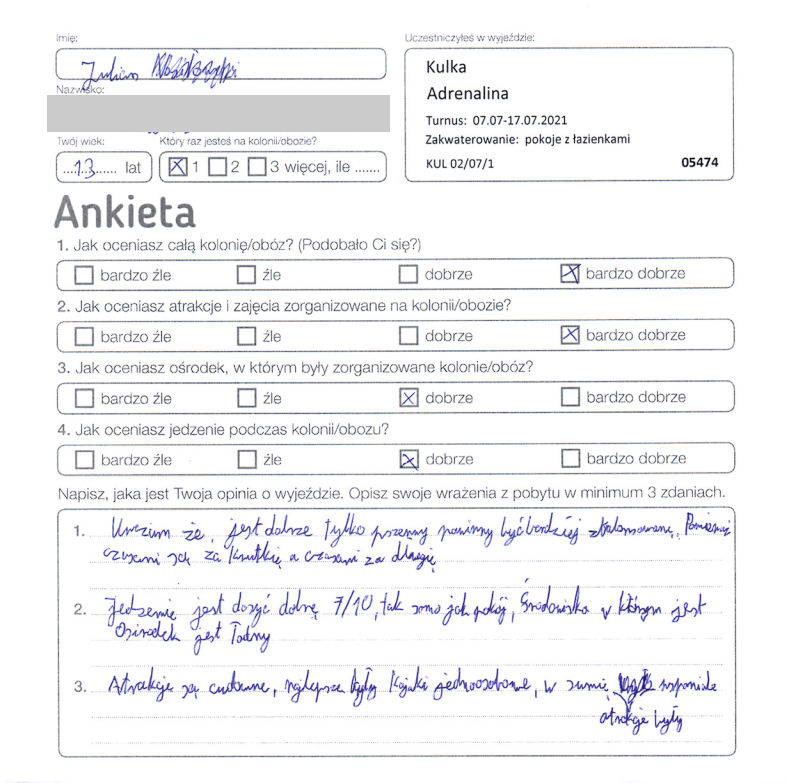 Imię:
Julian
Nazwisko:
Twój wiek:
13 lat
Który raz jesteś na kolonii/obozie?
1 2 3 więcej, ile .......
Uczestniczyłeś w wyjeździe:
Kulka
Adrenalina
Turnus: 07.07-17.07.2021
Zakwaterowanie: pokoje z łazienkami
KUL 02/07/1 05474
Ankieta
1. Jak oceniasz całą kolonię/obóz? (Podobało Ci się?)
bardzo źle źle dobrze bardzo dobrze
2. Jak oceniasz atrakcje i zajęcia zorganizowane na kolonii/obozie?
bardzo źle źle dobrze bardzo dobrze
3. Jak oceniasz ośrodek, w którym były zorganizowane kolonie/obóz?
bardzo źle źle dobrze bardzo dobrze
4. Jak oceniasz jedzenie podczas kolonii/obozu?
bardzo źle źle dobrze bardzo dobrze
Napisz, jaka jest Twoja opinia o wyjeździe. Opisz swoje wrażenia z pobytu w minimum 3 zdaniach.
1. Uważam że, jest dobrze tylko przerwy powinny być bardziej zbalansowane. Ponieważ
czasami są za krutkie a czasami za długie
2. Jedzenie jest dosyć dobre 7/10, tak samo jak pokój, Środowisko w którym jest
Ośrodek jest Ładny
3. Atrakcje są cudowne, najlepsze były Kajaki jednoosobowe, w sumie wspaniałe
atrakcje były